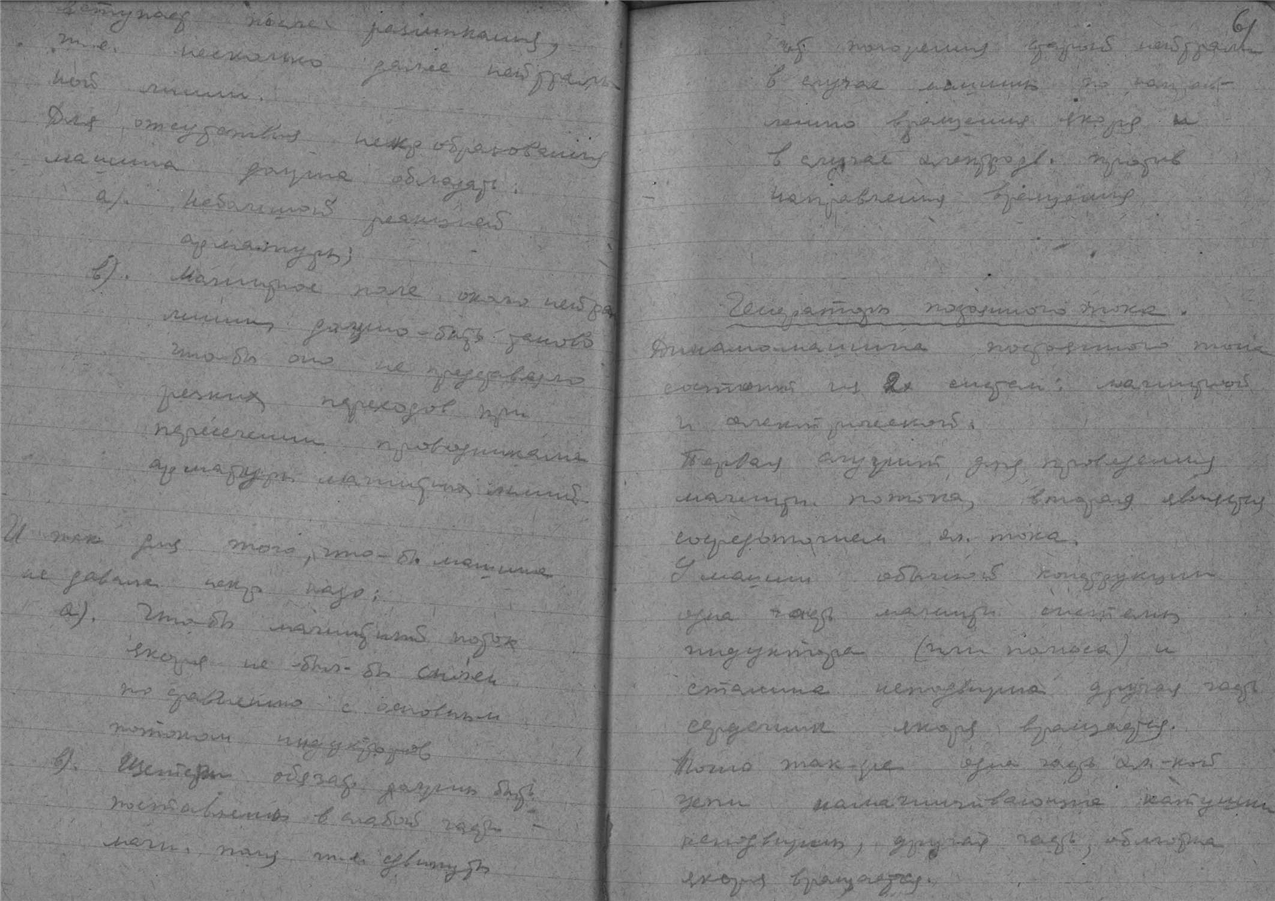 вступает после размыкания,
т.е. несколько далее нейтраль-
ной линии.
Для отсутствия искрообразования
машина должна обладать:
а). Небольшой реакцией
арматуры;
в). Магнитное поле около нейтра
линии должно-быть таково
что-бы оно не представляло
резких переходов при
пересечении проводниками
арматуры магнитных линий.
И так для того, что-бы машина
не давала искр надо:
а). Что-бы магнитный поток
якоря не был-бы силен
по сравнению с основным
потоком индукторов
в). Щетки обязат. должны быть
поставлены в слабой части
магн. поля т.е. сдвинуты
61
от положения старой нейтрали
в случае машины по направ-
лению вращения якоря и
в случае электродв. против
направления вращения
Генераторы постоянного тока.
Динамомашина постоянного тока
состоит из 2х систем: магнитной
и электрической.
Первая служит для проведения
магнитн. потока, вторая является
сосредоточием эл. тока.
У машин обычной конструкции
одна часть магнитн. системы
индуктора (или полюса) и
станина неподвижна другая часть
сердечник якоря вращается.
Точно так-же одна часть эл.-кой
цепи намагничивающие катушки
неподвижны, другая часть, обмотка
якоря вращается.